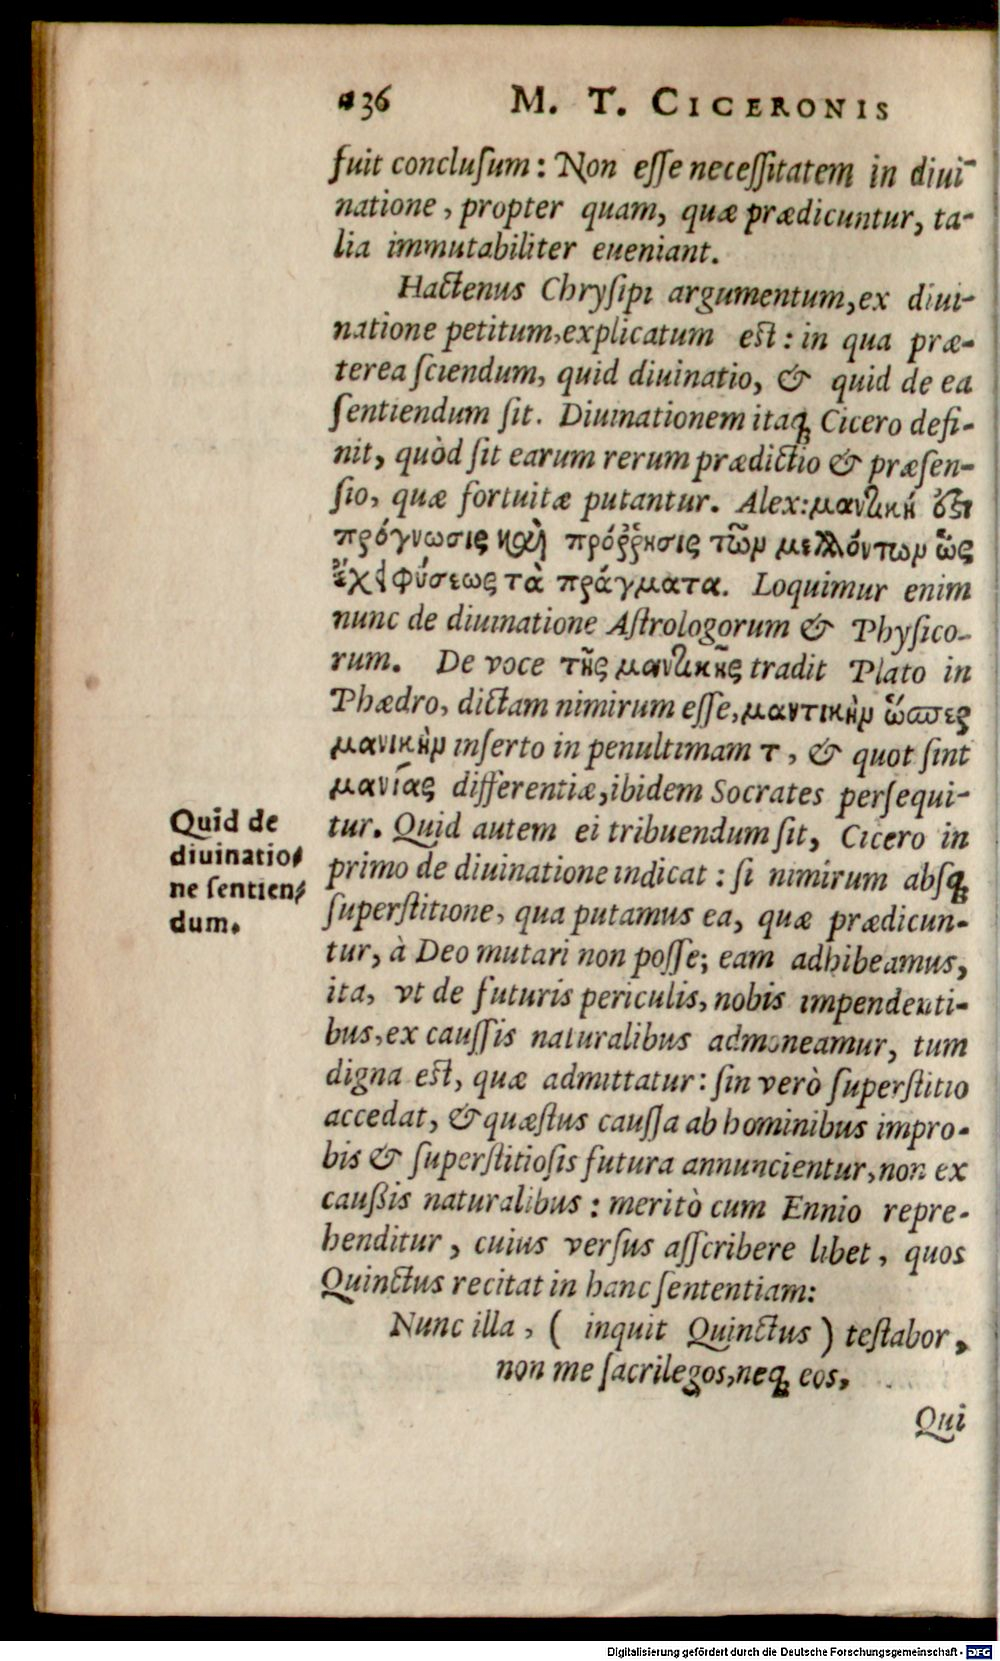 136 M. T. CICERONIS
fuit conclusum: Non esse necessitatem in divi-
natione, propter quam, quæ prædicuntur, ta-
lia immutabiliter eueniant.
Hactenus Chrysipi argumentum, ex diui-
natione petitum, explicatum est: in qua præ-
terea sciendum, quid diuinatio, & quid de ea
sentiendum sit. Diuinationem itaq; Cicero defi-
nit, quòd sit earum rerum prædictio & præsen-
sio, quæ fortuitæ putantur. Alex: μαντικὴ ἐστι
πρόγνωσις καὶ πρόῤῥησις τῶν μελλόντων ὡς
ἔχει φύσεως τὰ πράγματα. Loquimur enim
nunc de diuinatione Astrologorum & Physico-
rum. De voce τῆς μαντικῆς tradit Plato in
Phædro, dictam nimirum esse, μαντικὴν ὥσπερ
μανικὴν inserto in penultimam τ, & quot sint
μανίας differentiæ, ibidem Socrates persequi-
tur. Quid autem ei tribuendum sit, Cicero in
primo de diuinatione indicat: si nimirum absq;
superstitione, qua putamus ea, quæ prædicun-
tur, à Deo mutari non posse; eam adhibeamus,
ita, vt de futuris periculis, nobis impendenti-
bus, ex caussis naturalibus admoneamur, tum
digna est, quæ admittatur: sin verò superstitio
accedat, & quæstus caussa ab hominibus impro-
bis & superstitiosis futura annuncientur, non ex
caußis naturalibus: meritò cum Ennio repre-
henditur, cuius versus asscribere libet, quos
Quinctus recitat in hanc sententiam:
Nunc illa, ( inquit Quinctus ) testabor,
non me sacrilegos, neq; eos,
Qui
Quid de
diuinatio-
ne sentien-
dum.
Digitalisierung gefördert durch die Deutsche Forschungsgemeinschaft - DFG